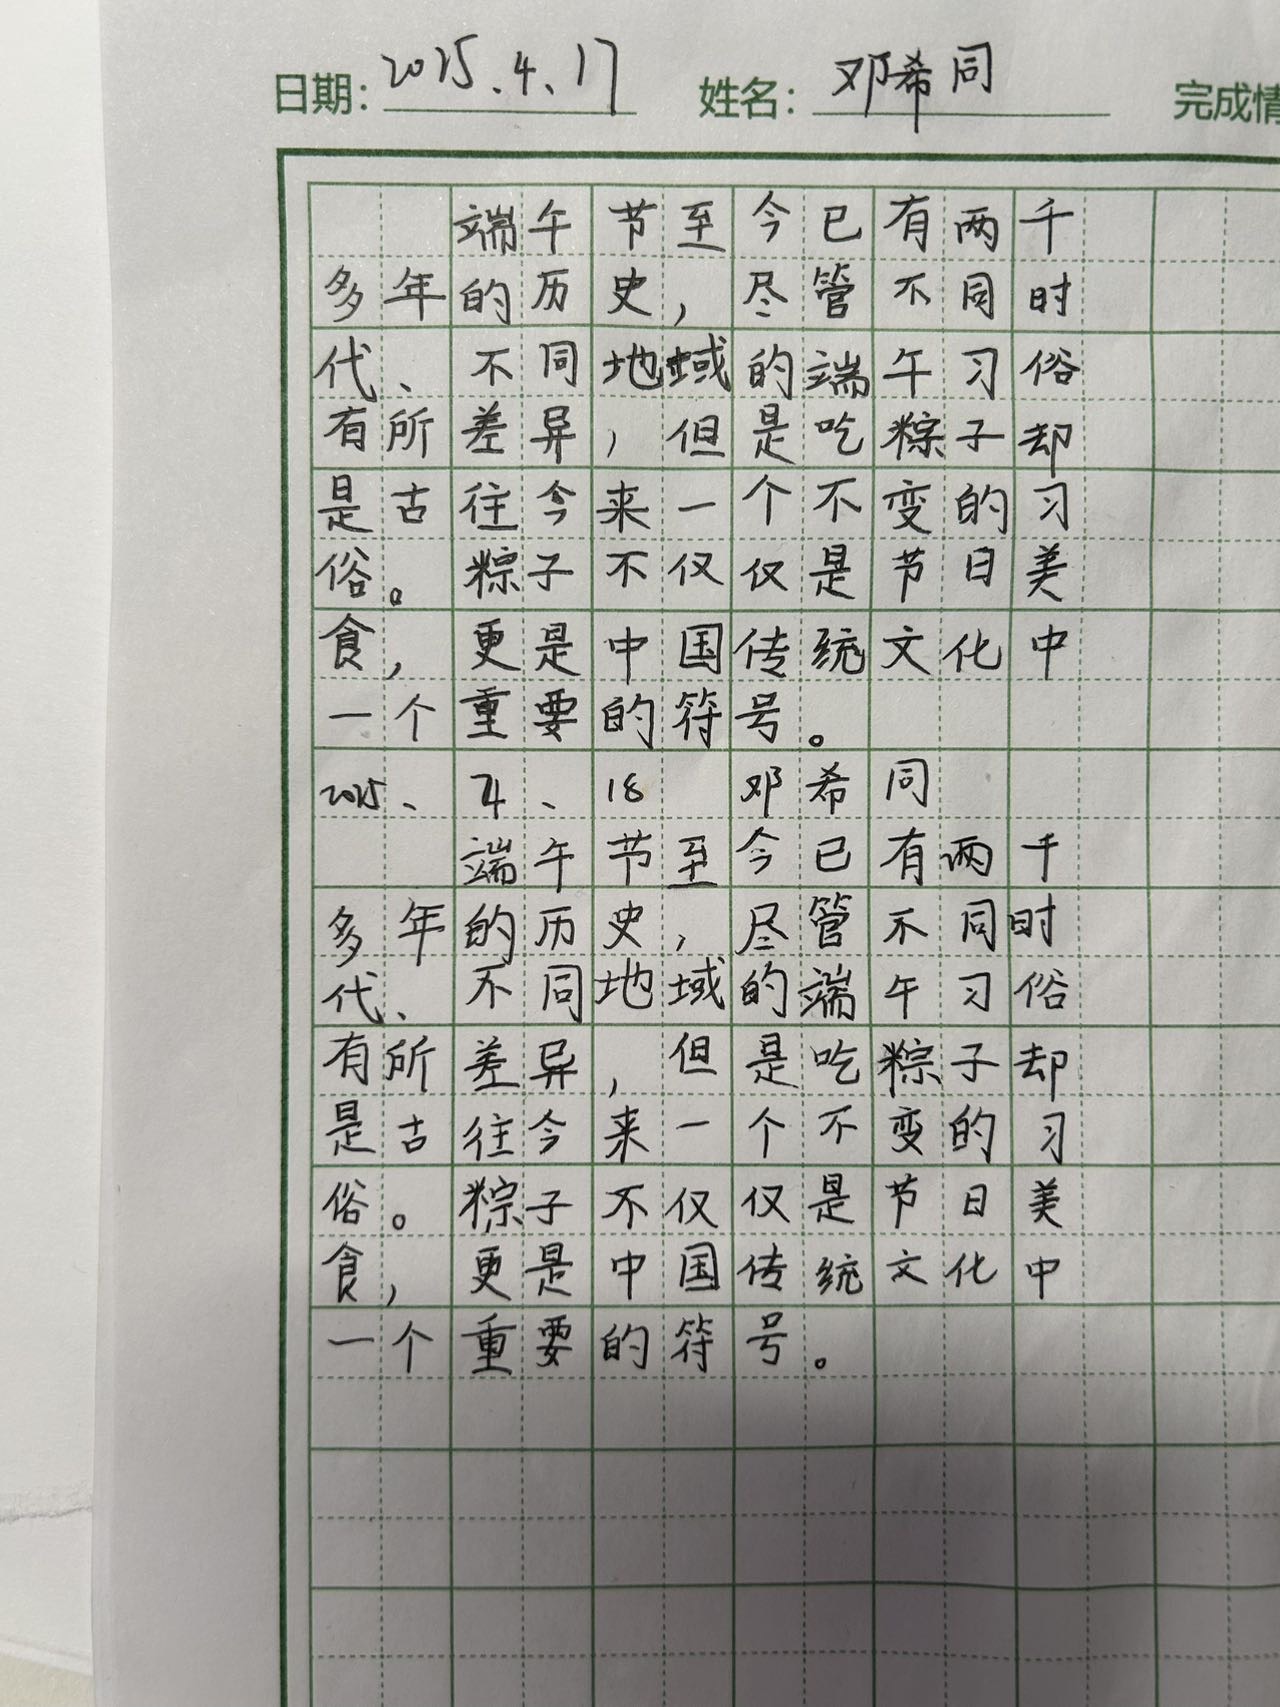 日期：2025.4.17 姓名：邓希同 完成情
端午节至今已有两千
多年的历史，尽管不同时
代、不同地域的端午习俗
有所差异，但是吃粽子却
是古往今来一个不变的习
俗。粽子不仅仅是节日美
食，更是中国传统文化中
一个重要的符号。
2025、4、18 邓希同
端午节至今已有两千
多年的历史，尽管不同时
代、不同地域的端午习俗
有所差异，但是吃粽子却
是古往今来一个不变的习
俗。粽子不仅仅是节日美
食，更是中国传统文化中
一个重要的符号。